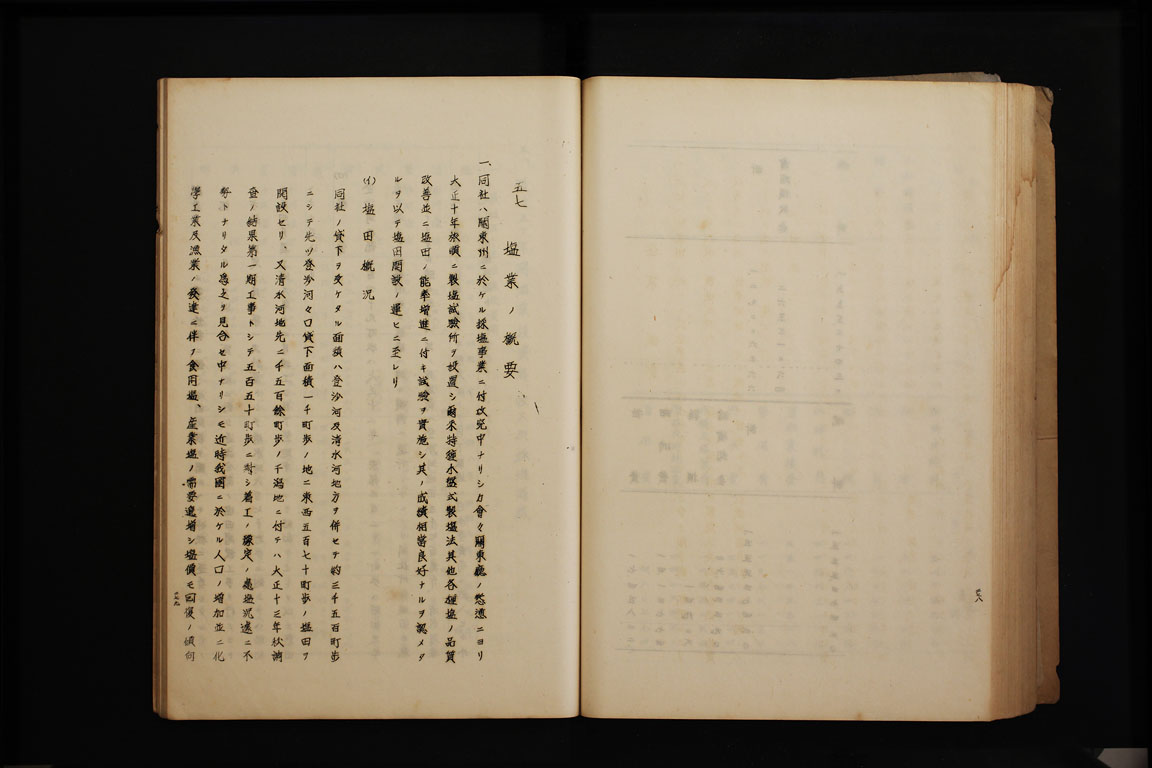 五七 塩業ノ概要
一、同社ハ関東州ニ於ケル採塩事業ニ付攻究中ナリシカ會々関東廳ノ慫慂ニヨリ
大正十年旅順ニ製塩試験所ヲ設置シ爾来特種小盤式製塩法其他各種塩ノ品質
改善並ニ塩田ノ能率増進ニ付キ試験ヲ實施シ其ノ成績相當良好ナルヲ認メタ
ルヲ以テ塩田開設ノ運ヒニ至レリ
(イ) 塩田概況
同社ノ貸下ヲ受ケタル面積ハ登沙河及清水河地方ヲ併セテ約三千五百町歩
ニシテ先ツ登沙河々口貸下面積一千町歩ノ地ニ東西五百七十町歩ノ塩田ヲ
開設セリ、又清水河地先ニ千五百餘町歩ノ干潟地ニ付テハ大正十三年秋調
査ノ結果第一期工事トシテ五百五十町歩ニ對シ着工ノ豫定ノ處塩況遂ニ不
振トナリタル為之ヲ見合セ中ナリシモ近時我國ニ於ケル人口ノ増加並ニ化
學工業及漁業ノ発達ニ伴ヲ食用塩、産業塩ノ需要逓増シ塩價モ回復ノ傾向